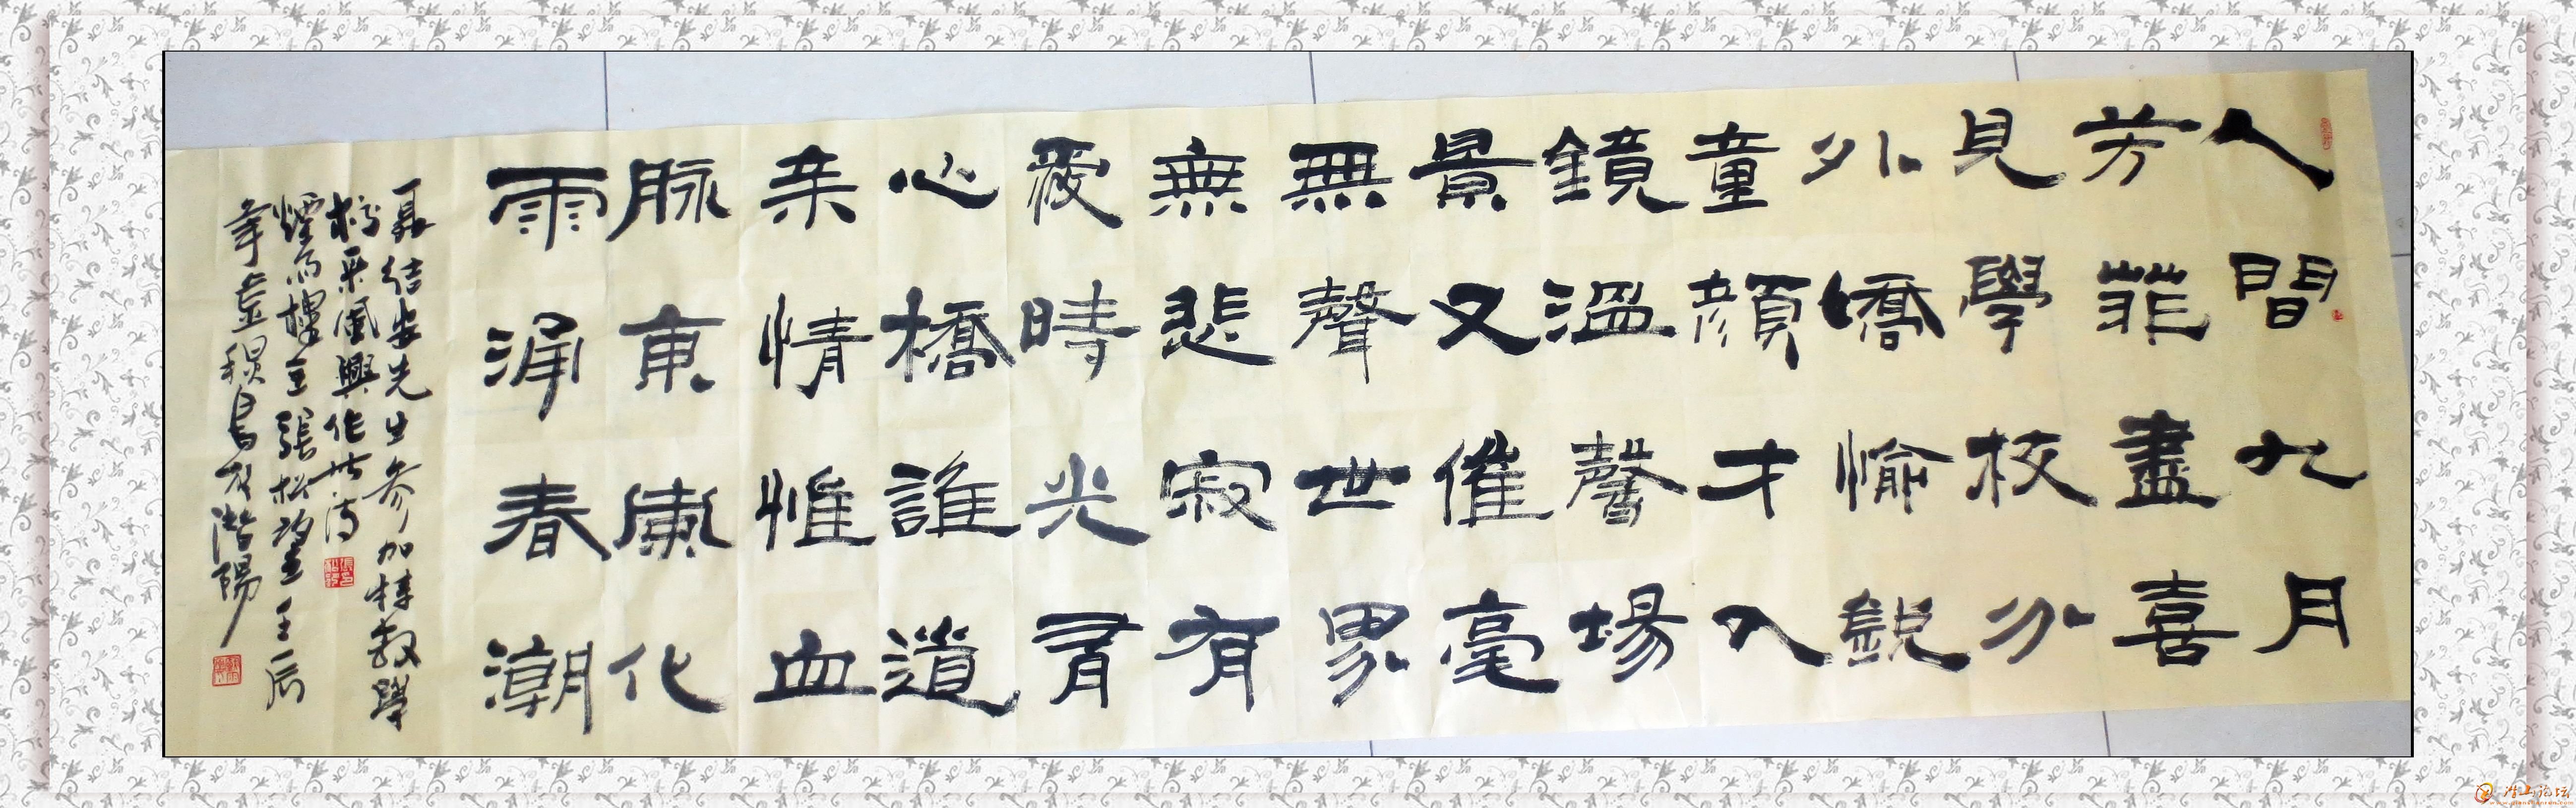 人間九月
芳菲盡喜
見學校分
外嬌愉銳
童顏才入
鏡溫馨場
景又催毫
無聲世界
無悲寂有
愛時光有
心橋誰道
親情惟血
脈東風化
雨涌春潮
聶結安先生參加特教學
校采風興作此詩
煙雨樓主張松望壬辰
年
潛陽